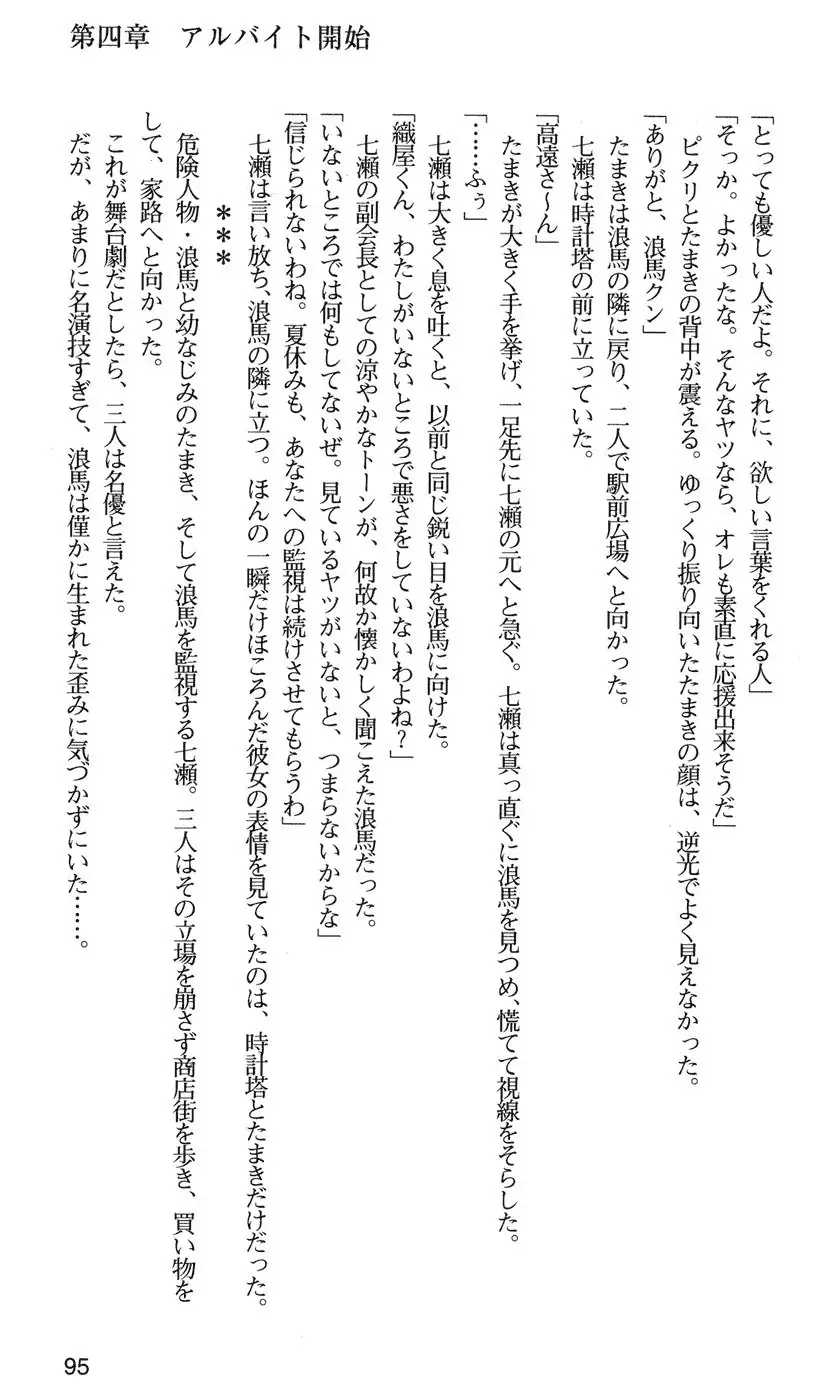 第四章　アルバイト開始
「とっても優しい人だよ。それに、欲しい言葉をくれる人」
「そっか。よかったな。そんなヤツなら、オレも素直に応援出来そうだ」
ピクリとたまきの背中が震える。ゆっくり振り向いたたまきの顔は、逆光でよく見えなかった。
「ありがと、浪馬クン」
たまきは浪馬の隣に戻り、二人で駅前広場へと向かった。
七瀬は時計塔の前に立っていた。
「高遠さ～ん」
たまきが大きく手を挙げ、一足先に七瀬の元へと急ぐ。七瀬は真っ直ぐに浪馬を見つめ、慌てて視線をそらした。
「……ふぅ」
七瀬は大きく息を吐くと、以前と同じ鋭い目を浪馬に向けた。
「織屋くん、わたしがいないところで悪さをしていないわよね？」
七瀬の副会長としての涼やかなトーンが、何故か懐かしく聞こえた浪馬だった。
「いないところでは何もしてないぜ。見ているヤツがいないと、つまらないからな」
「信じられないわね。夏休みも、あなたへの監視は続けさせてもらうわ」
七瀬は言い放ち、浪馬の隣に立つ。ほんの一瞬だけほころんだ彼女の表情を見ていたのは、時計塔とたまきだけだった。
＊＊＊
危険人物・浪馬と幼なじみのたまき、そして浪馬を監視する七瀬。三人はその立場を崩さず商店街を歩き、買い物を
して、家路へと向かった。
これが舞台劇だとしたら、三人は名優と言えた。
だが、あまりに名演技すぎて、浪馬は僅かに生まれた歪みに気づかずにいた……。
95